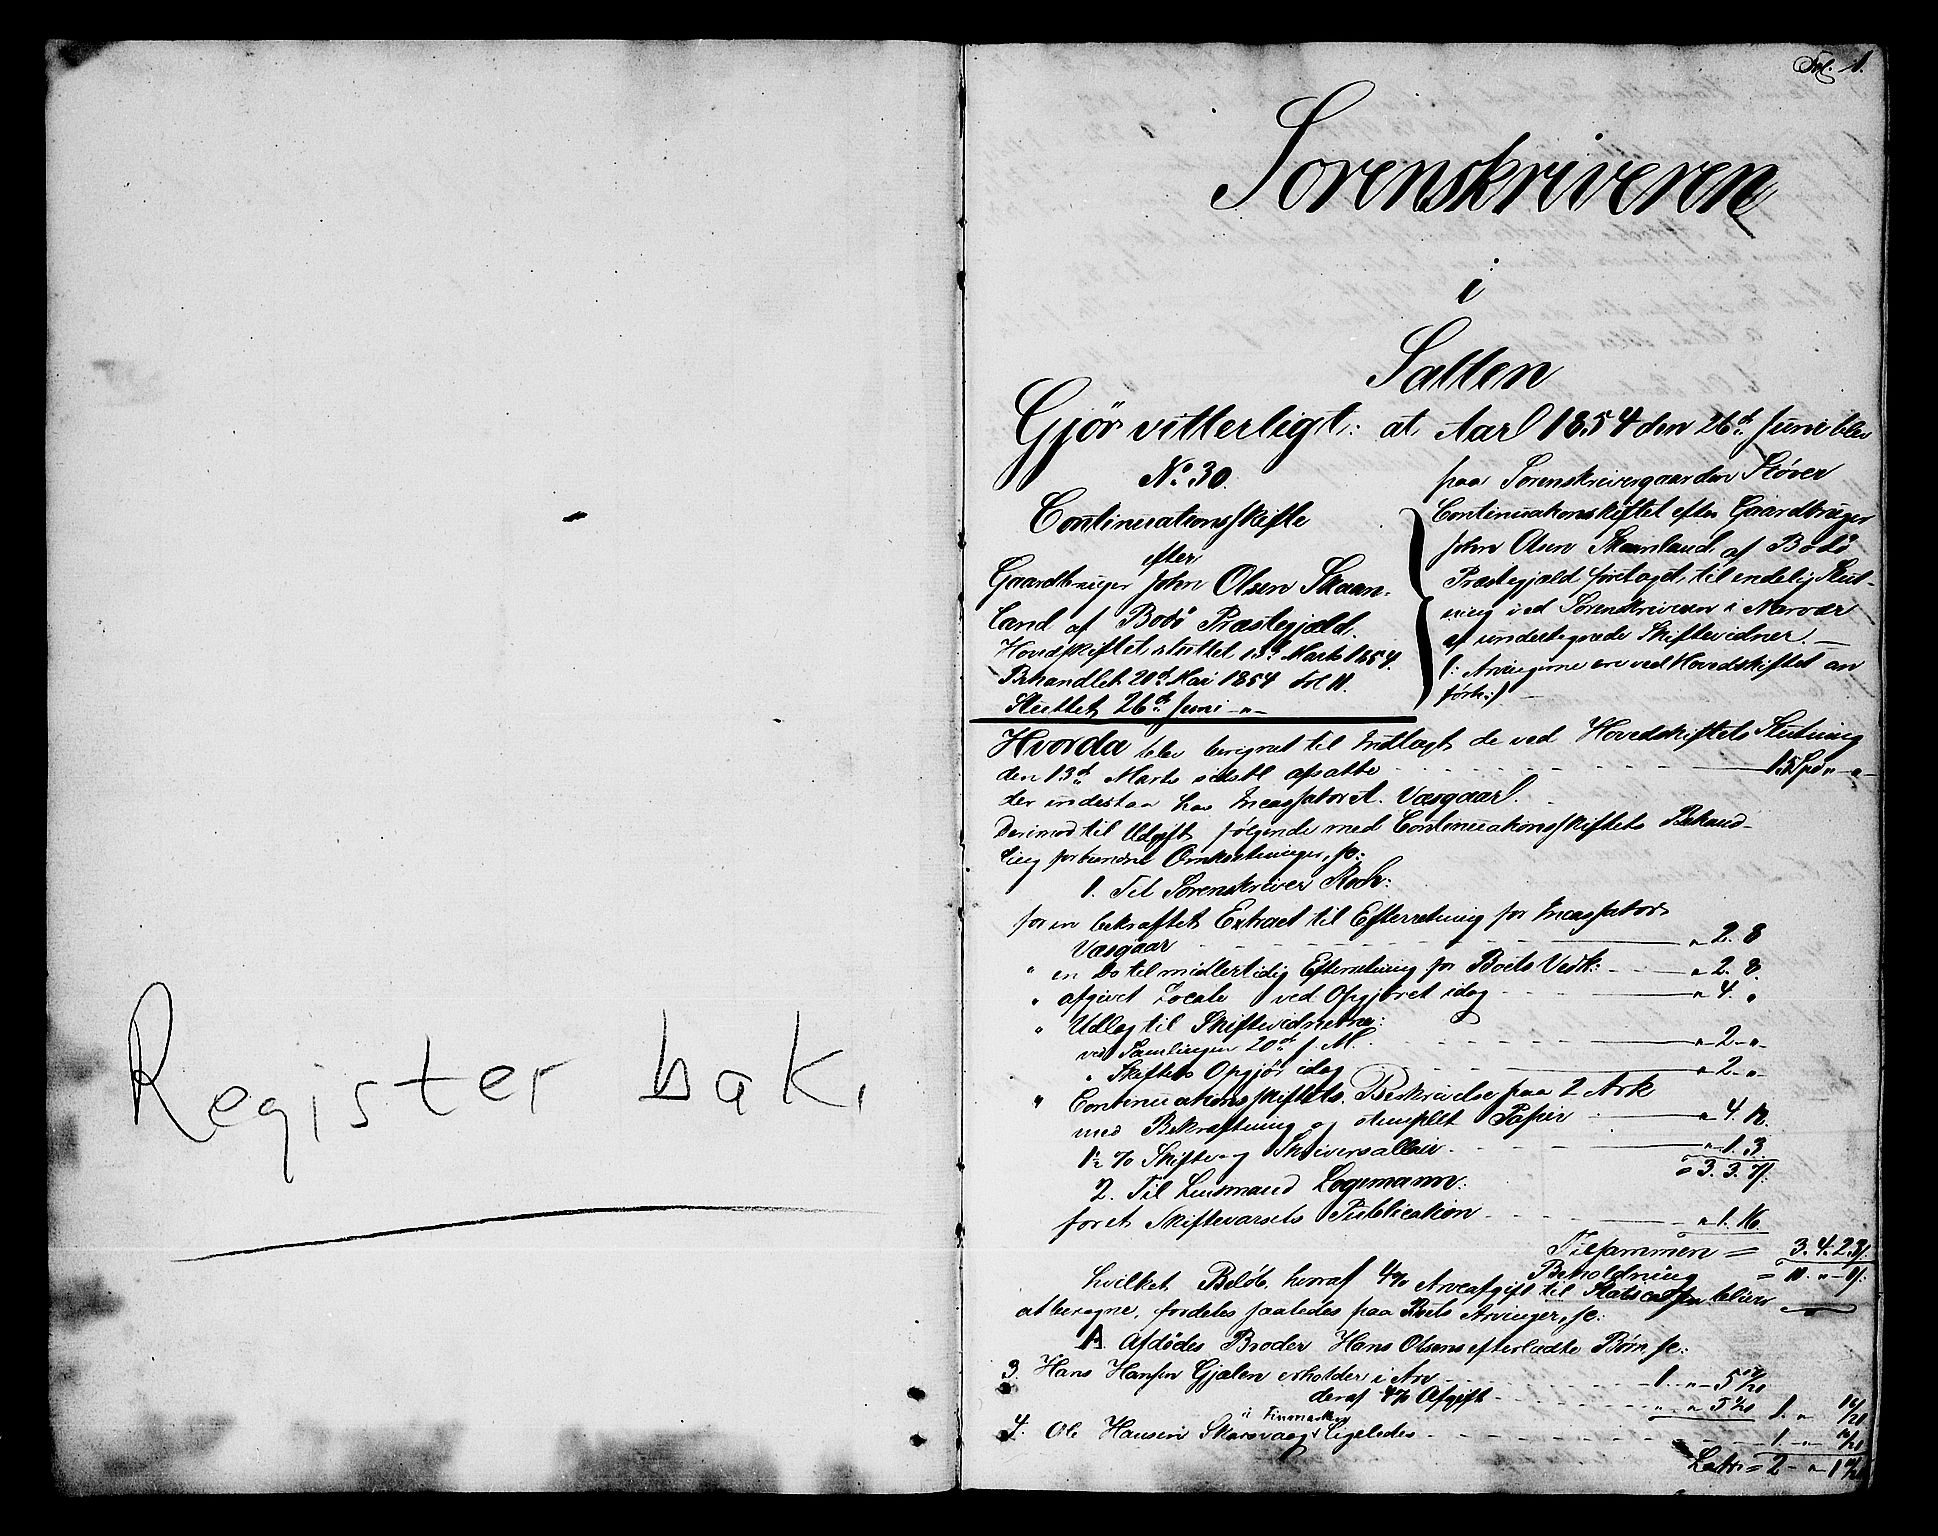 Register bak.
Fol. 1.
Sorenskriveren
i
Salten
Gjør vitterligt: at Aar 1854 den 26d Juni blev
No. 30.
Continuationsskifte
efter
Gaardbruger John Olsen Skaan-
land af Bodø Præstegjæld.
Hovedskiftet sluttet 13d Marts 1854.
Behandlet 20d Mai 1854 Fol 11.
Sluttet 26d Juni -"-
paa Sorenskrivergaarden Støver
Continuationskiftet efter Gaardbruger
John Olsen Skaanland af Bodø
Præstegjæld foretaget til endelig Slut-
ning ved Sorenskriveren i Nærvær
af undertegnede Skiftevidner. —
(: Arvingerne ere ved Hovedskiftet an
førte :) —
Hvorda blev beregnet til Indtægt de ved Hovedskiftets Slutning
den 13d Marts sidstl afsatte 15 Spd " "
der indestaa hos Incassator A. Vasgaard.
Derimod til Udgift følgende med Continuationsskiftets Behand-
ling forbundne Omkostninger, sc:
1. Til Sorenskriver Koch:
for en bekræftet Extract til Efterretning for Incassator
Vasgaar " 2. 8
" en Do til midlertidig Efterretning for Boets Vedk: " 2. 8.
" afgivet Locale ved Opgjøret idag " 4. "
" Udlag til Skiftevidnerne:
ved Samlingen 20d f. M. " 2 - " -
" Skiftets Opgjør idag " 2 - " -
" Continuationsskiftets Beskrivelse paa 2 Ark
med Bekræftning og stemplet Papir " 4. 12.
1½ % Skifte og Skriversallair " 1. 3.
= 3. 3. 7/.
2. Til Lensmand Logemann:
for et Skiftevarsels Publication " 1. 16.
Tilsammen = 3. 4. 23/.
Beholdning = 11. " - 1/.
hvilket Beløb, hvoraf 4% Arveafgift til Statscassen bliver
at beregne, fordeles saaledes paa Boets Arvinger, sc:
A Afdødes Broder Hans Olsens efterladte Børn, sc:
3. Hans Hansen Gjælen erholder i Arv 1. "
deraf 4% Afgift 1. "
i Finmarken
4. Ole Hansen Skarsvaag Ligeledes 1. "
Latr = 2 - " -